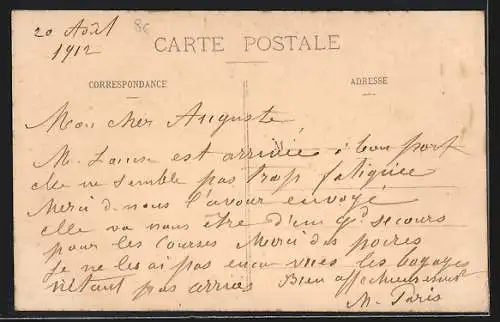 20 Août
1912
8€
CARTE POSTALE
CORRESPONDANCE
ADRESSE
Mon cher Auguste
M. est arrivée à bon port
elle ne semble pas trop fatiguée
Merci de nous l'avoir envoyé
elle va nous être d'un gd secours
pour les courses Merci des poires
je ne les ai pas encore vues les bagages
n'étant pas arrivés Bien affectueusement
M. Paris